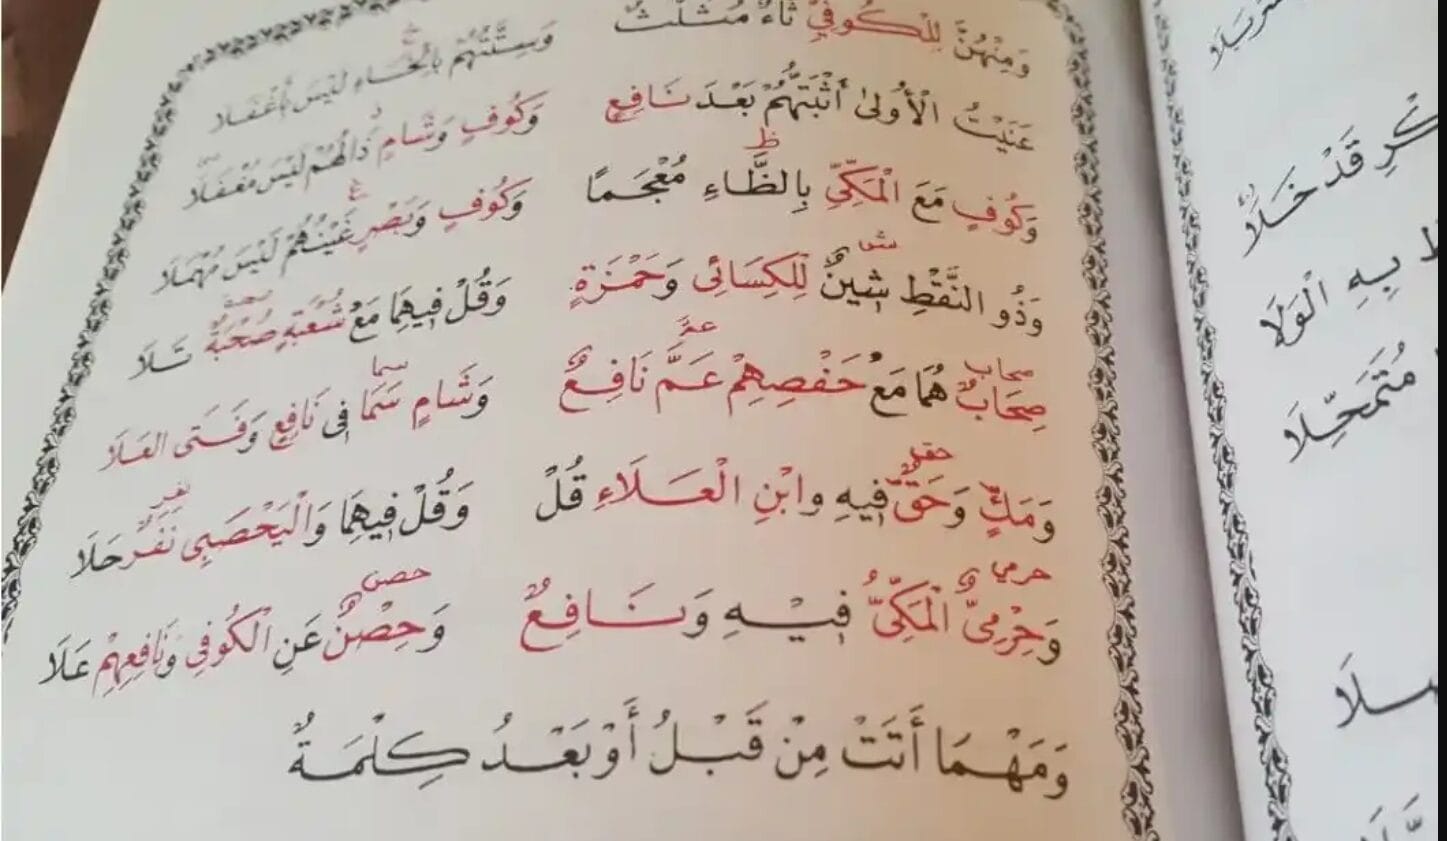 وَمِنْهُنَّ لِلْكُوفِيِّ ثَاءٌ مُثَلَّثٌ وَسِتَّتُهُمْ بِالْخَاءِ لَيْسَ بِأَغْفَلَا
عَنَيْتُ الْأُولَىٰ أَثْبَتُّهُمْ بَعْدَ نَافِعٍ وَكُوفٍ وَشَامٍ ذَالُهُمْ لَيْسَ مُغْفَلَا
وَكُوفٍ مَعَ الْمَكِّيِّ بِالظَّاءِ مُعْجَمًا وَكُوفٍ وَبَصْرٍ غَيْنُهُمْ لَيْسَ مُهْمَلَا
وَذُو النَّقْطِ شِينٌ لِلْكِسَائِي وَحَمْزَةٍ وَقُلْ فِيهِمَا مَعْ شُعْبَةٍ صُحْبَةٌ تَلَا
صِحَابٌ هُمَا مَعْ حَفْصِهِمْ عَمَّ نَافِعٌ وَشَامٍ سَمَا فِي نَافِعٍ وَفَتَى الْعَلَا
وَمَكٍّ وَحَقٌّ فِيهِ وَابْنِ الْعَلَاءِ قُلْ وَقُلْ فِيهِمَا وَالْيَحْصَبِي نَفَرٌ حَلَا
وَحِرْمِيٌّ الْمَكِّيُّ فِيهِ وَنَافِعٌ وَحِصْنٌ عَنِ الْكُوفِي وَنَافِعِهِمْ عَلَا
وَمَهْمَا أَتَتْ مِنْ قَبْلُ أَوْ بَعْدُ كِلْمَةٌ
كْرِ قَدْ خَلَا
بِهِ الْوَلَا
مُتَمَحِّلَا